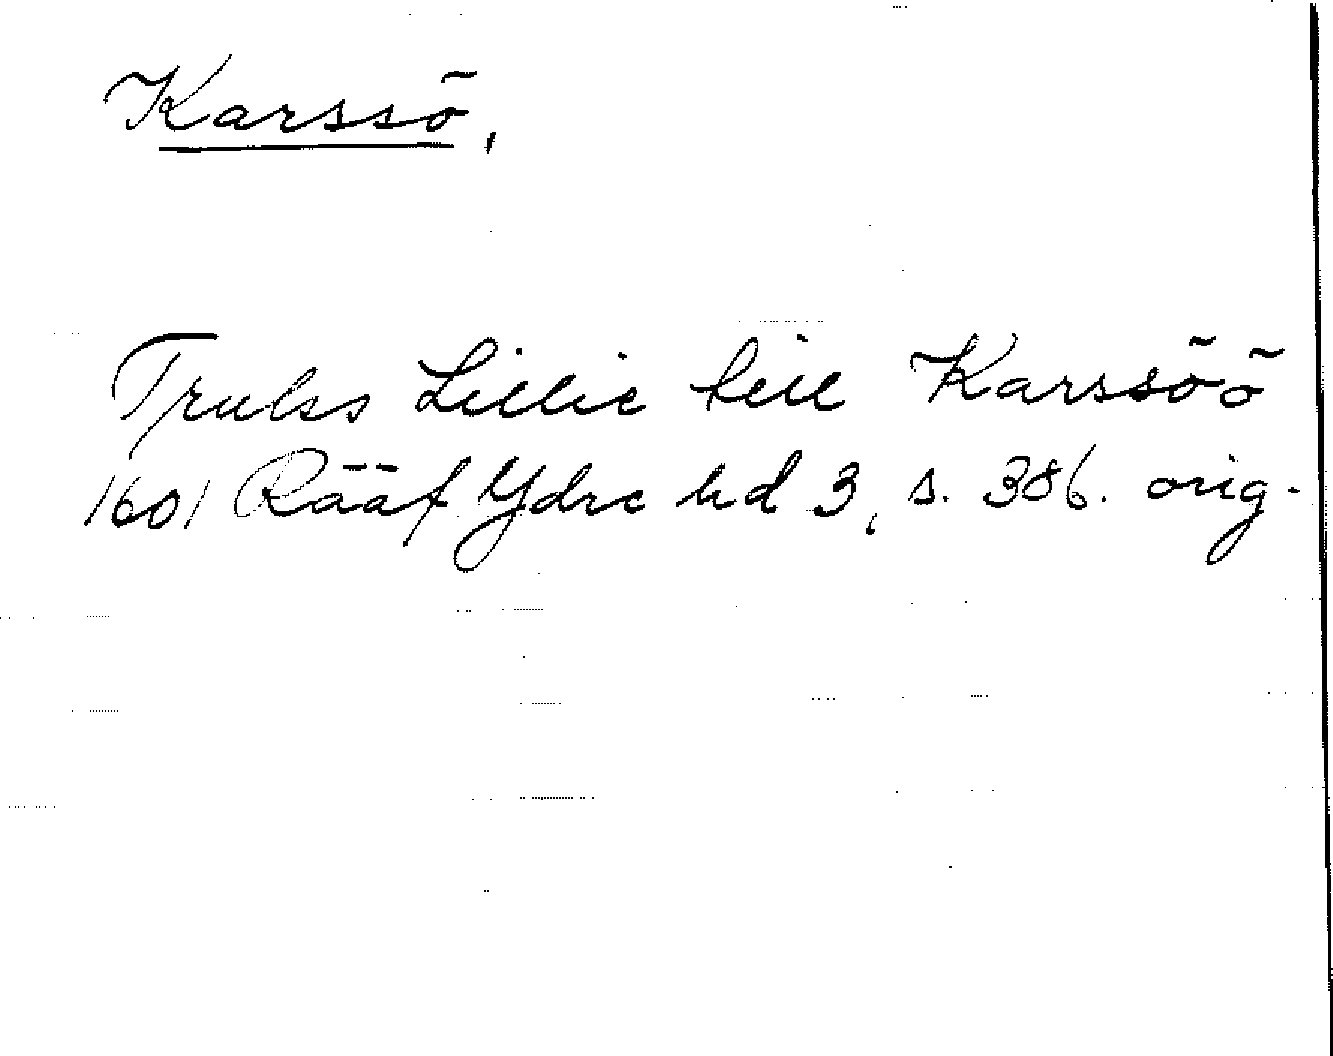 Karssö,
Trulss Lillie till Karssöö
1601 Rääf Ydre hd 3, s. 386. orig.